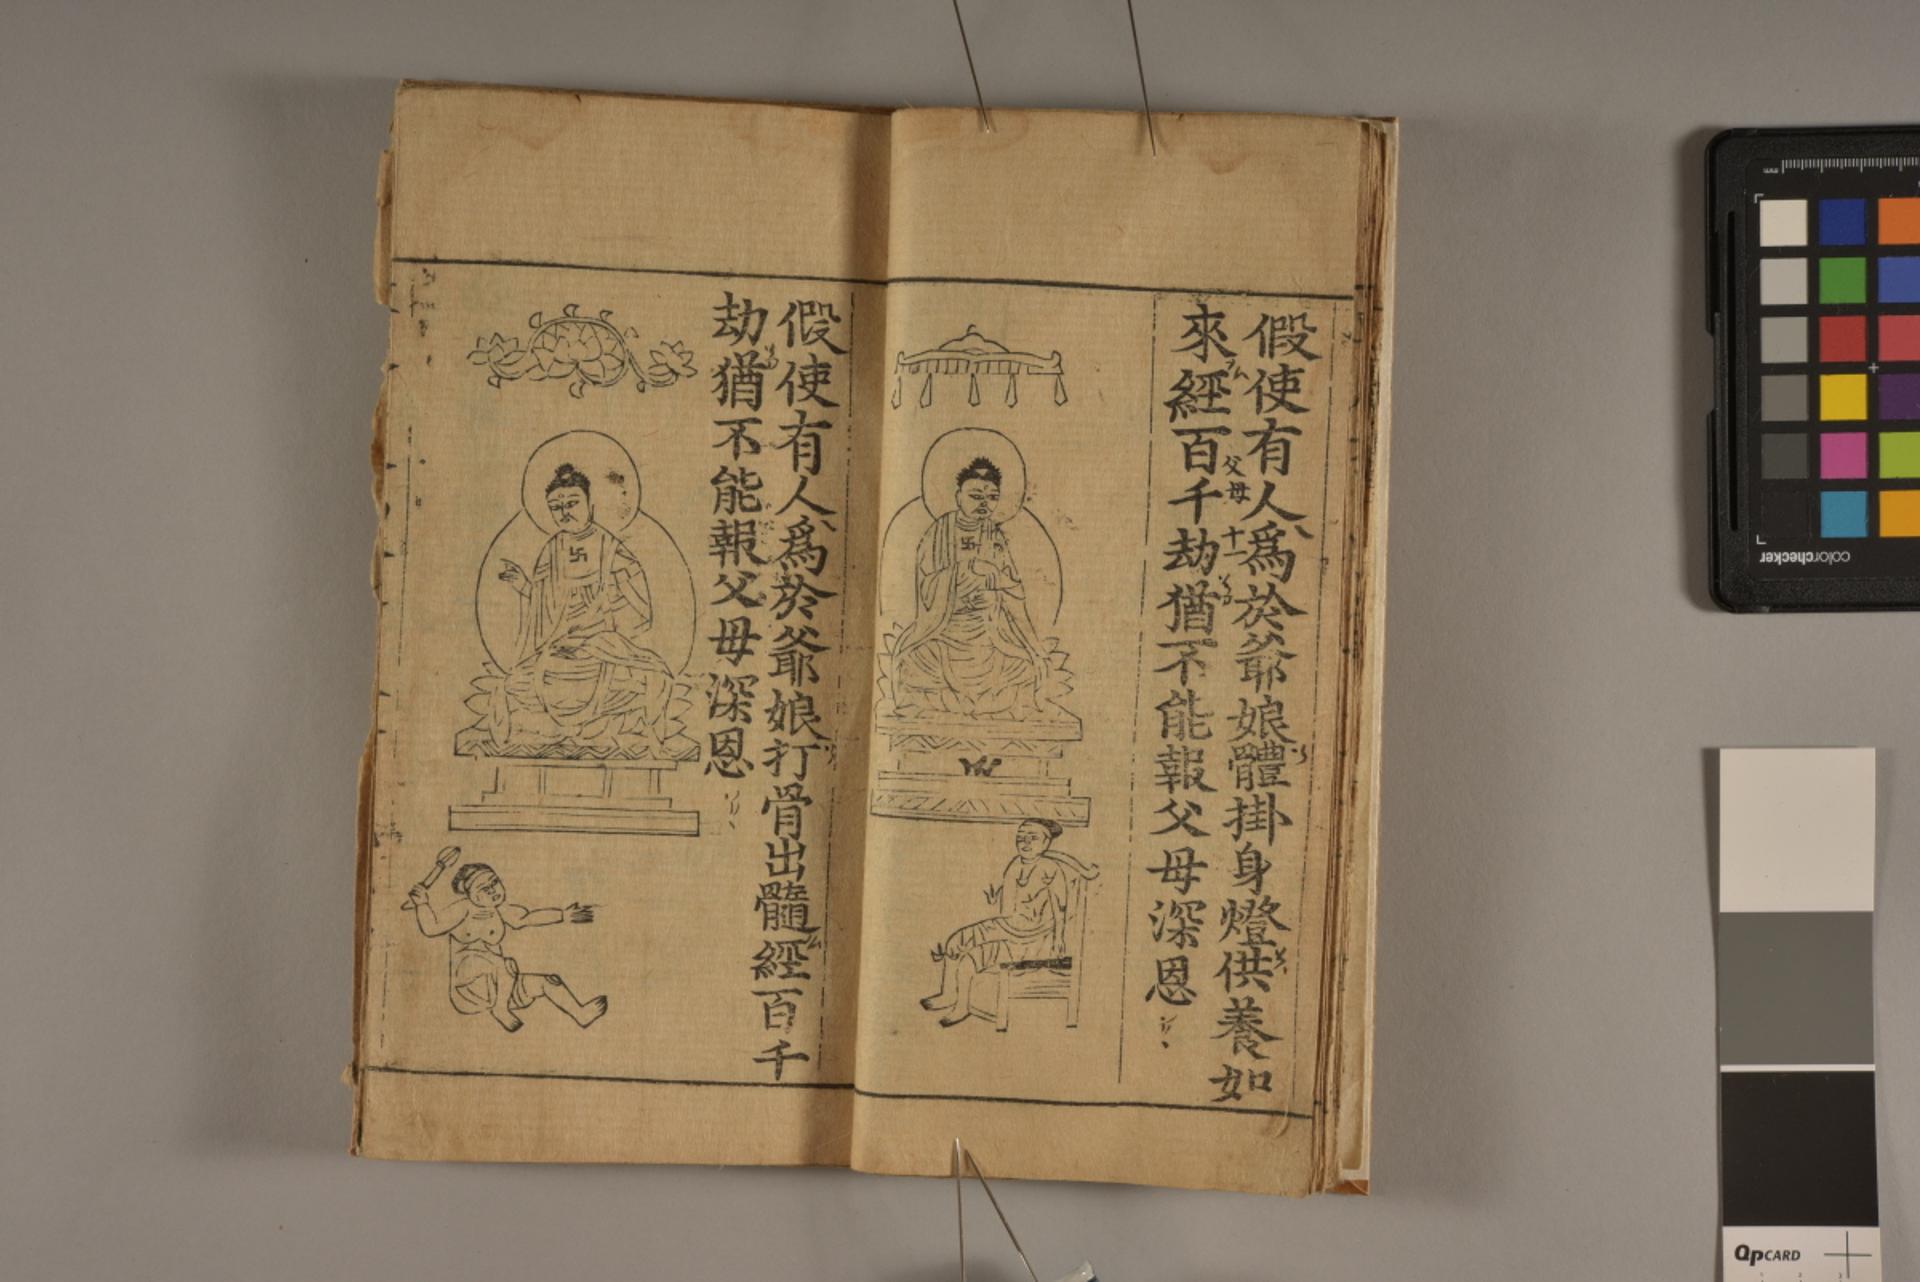 假使有人爲於爺娘體掛身燈供養如
來經百千劫猶不能報父母深恩
父母
十一
假使有人爲於爺娘打骨出髓經百千
劫猶不能報父母深恩
mm
colorchecker
QpCARD